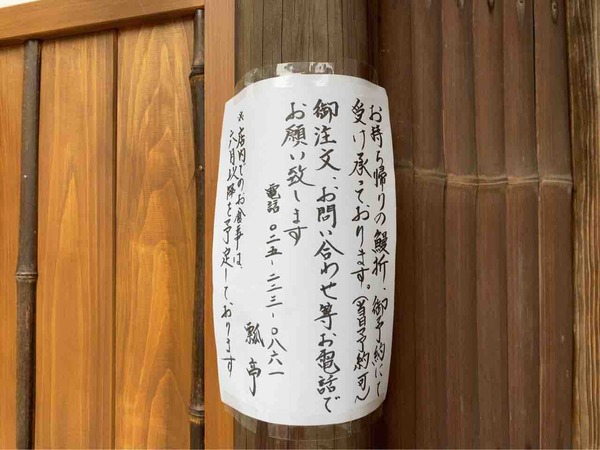 お持ち帰りの鰻折、御予約にて
受け承っております。(当日予約可)
御注文、お問い合わせ等お電話で
お願い致します
電話 〇二五-二二三-〇八六一
瓢亭
※店内でのお食事は、
六月以降を予定しております